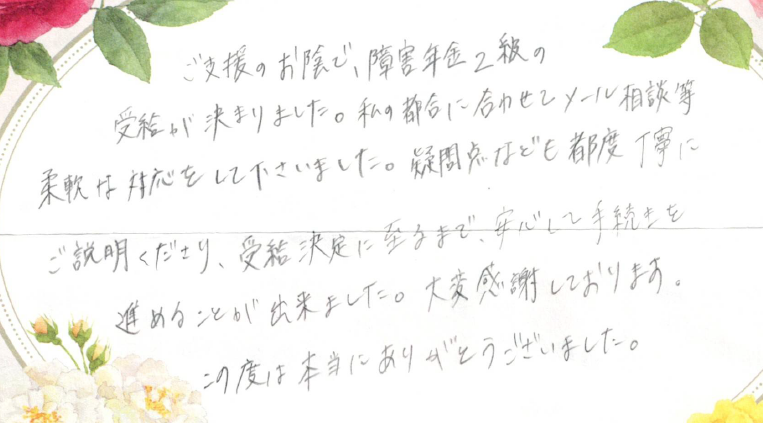 ご支援のお陰で、障害年金2級の
受給が決まりました。私の都合に合わせてメール相談等
柔軟な対応をして下さいました。疑問点なども都度丁寧に
ご説明くださり、受給決定に至るまで、安心して手続きを
進めることが出来ました。大変感謝しております。
この度は本当にありがとうございました。